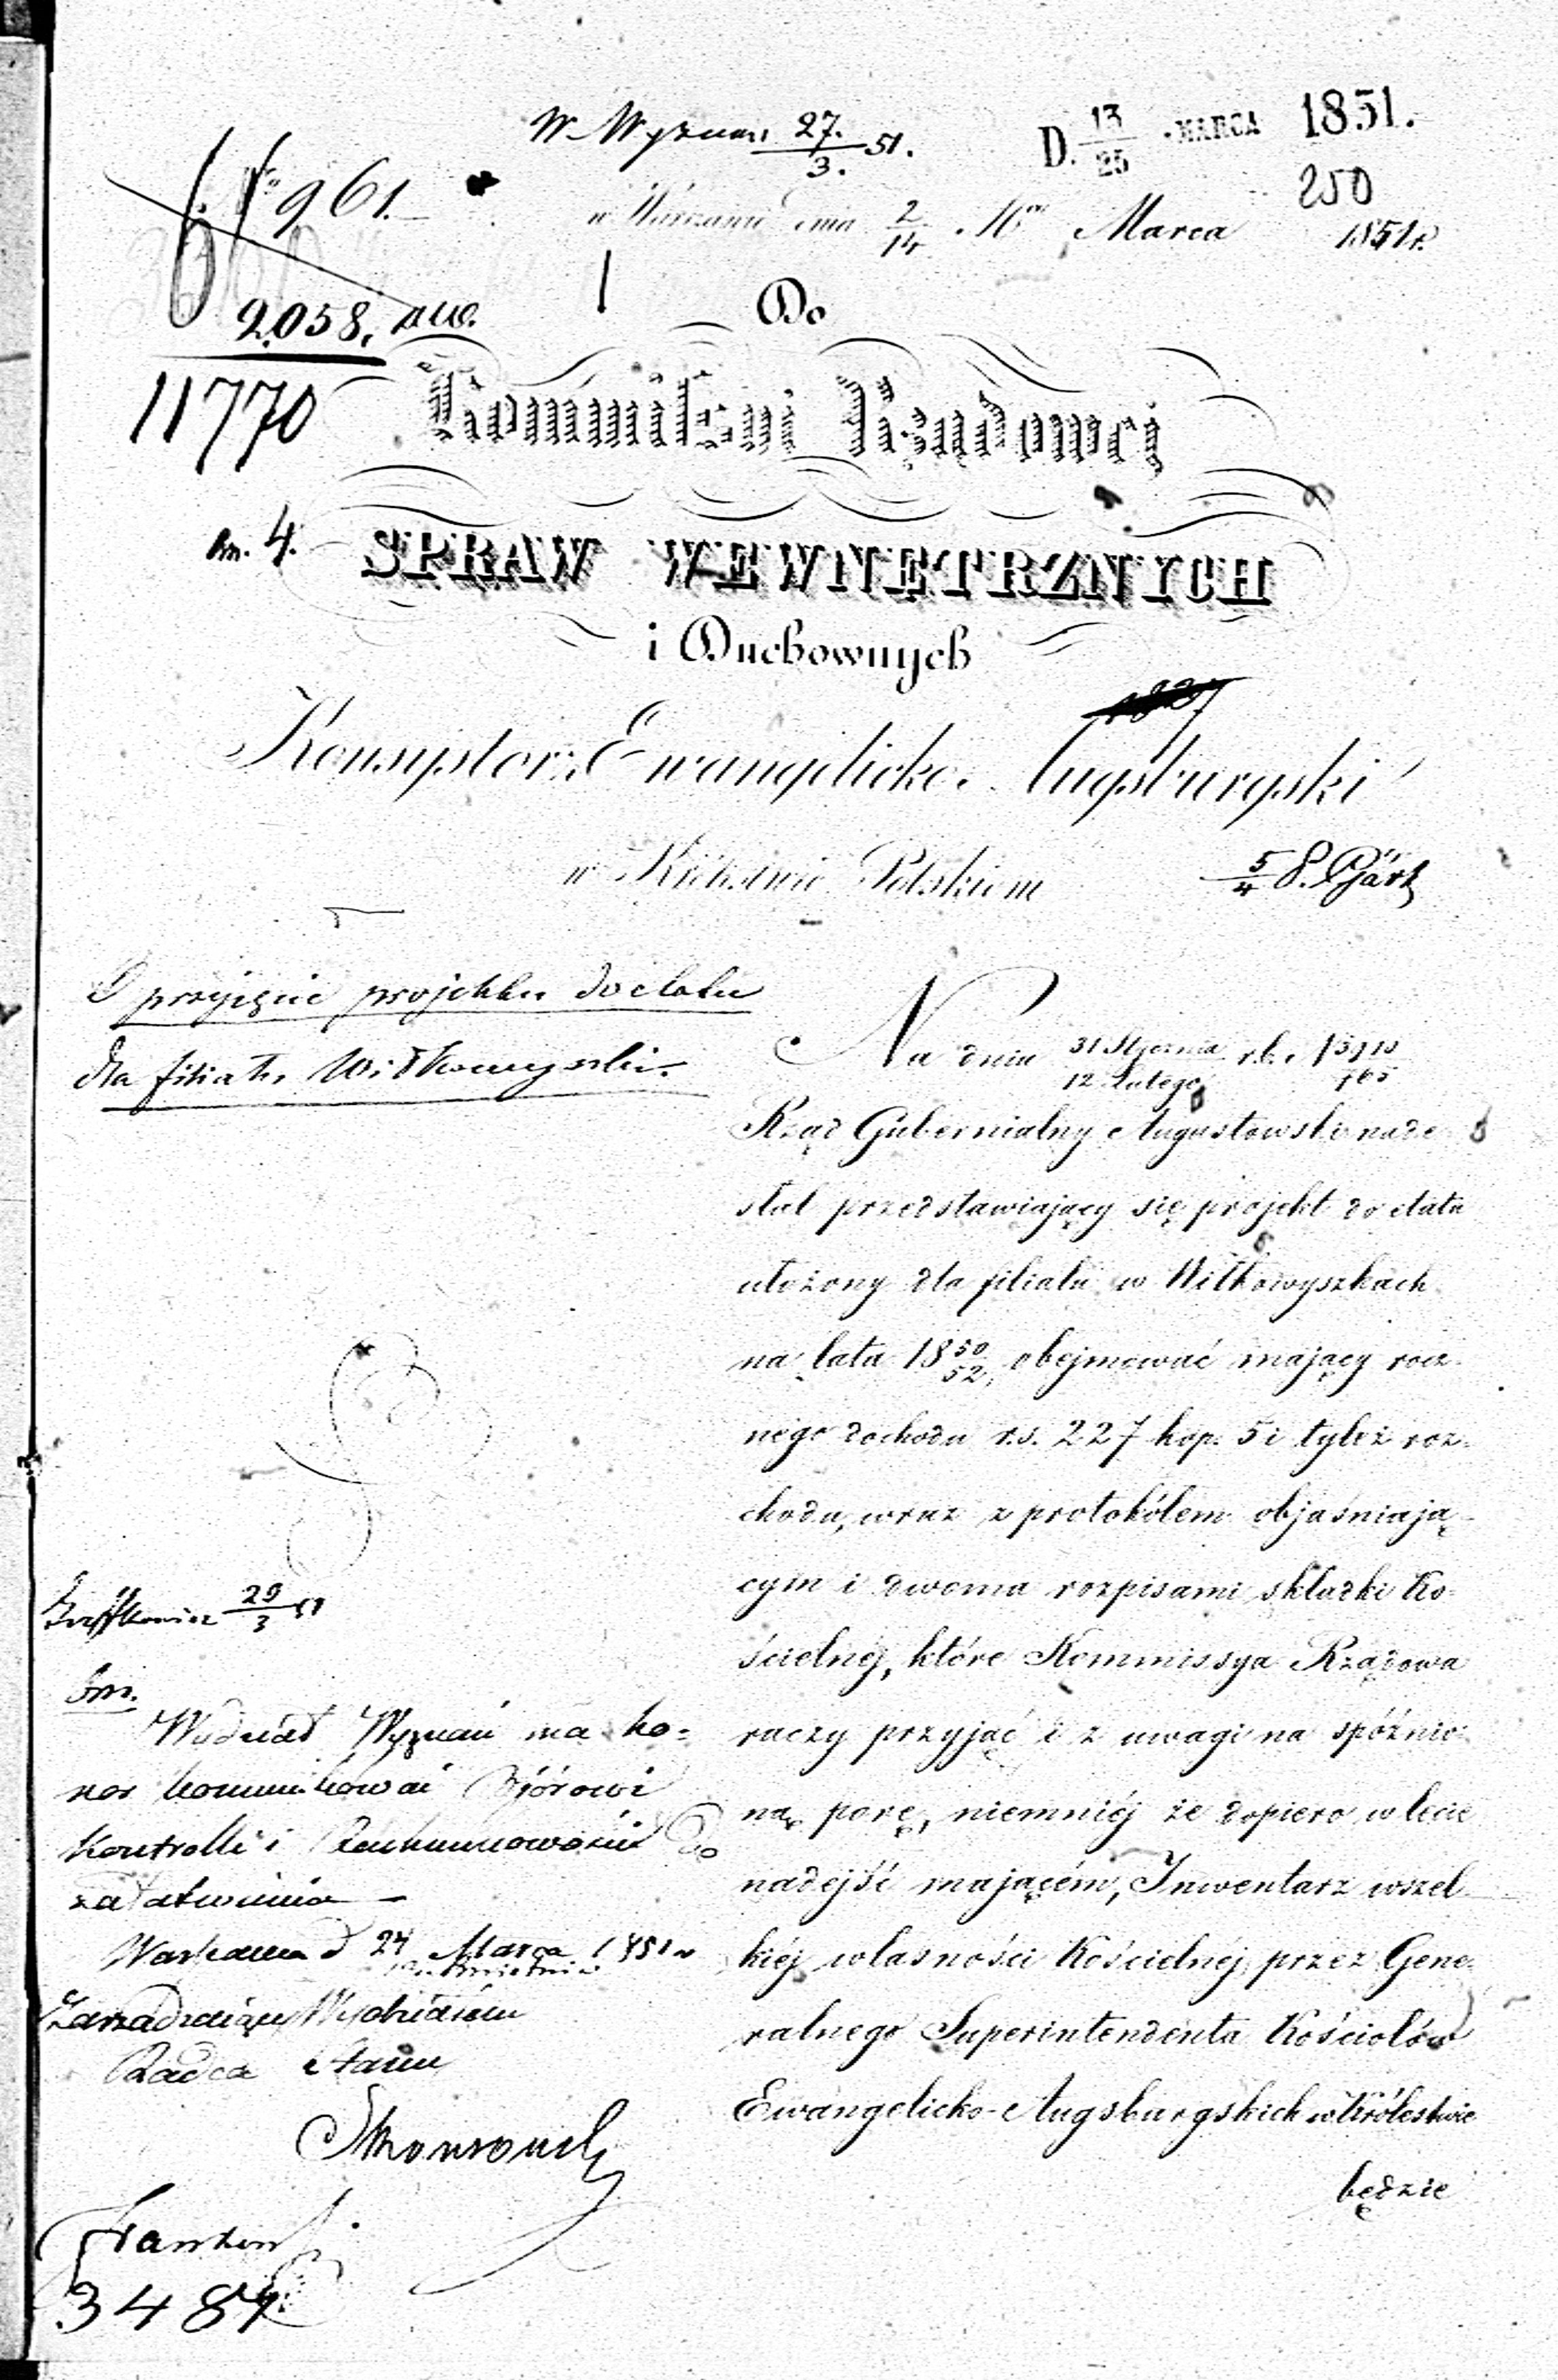 W. Wyznań 27./3. 51.
D. 13/25 MARCA 1851.
250
No 961.
w Warszawie dnia 2/14 Marca 1851 r.
2058.
11770
Do
Kommissyi Rządowej
SPRAW WEWNĘTRZNYCH
i Duchownych
4.
Konsystorz Ewangelicko-Augsburgski
w Królestwie Polskiem
5/4
O przyjęcie projektu do etatu
dla filiału Wiłkowyszki.
Na dniu 31 Stycznia/12 Lutego r.b.
Rząd Gubernialny Augustowski nade
słał przedstawiający się projekt do etatu
ułożony dla filiału w Wiłkowyszkach
na lata 18 50/52, obejmować mający rocz-
nego dochodu r.s. 227 kop. 5 i tyleż roz-
chodu, wraz z protokółem objaśniają-
cym i dwoma rozpisami składki Ko-
ścielnej, które Kommissya Rządowa
raczy przyjąć i z uwagi na spóźnio-
ną porę, niemniéj że dopiero w lecie
nadejść mającém, Inwentarz wszel-
kiéj własności Kościelnéj przez Gene-
ralnego Superintendenta Kościołów
Ewangelicko-Augsburgskich w Królestwie
będzie
29/3 51
Wydział Wyznań ma ho-
nor kommunikować Bjórowi
Kontrolli i Rachunkowości do
załatwienia
Warszawa d 24 Marca 1851 r
Zarządzający Wydziałem
Radca Stanu
3484